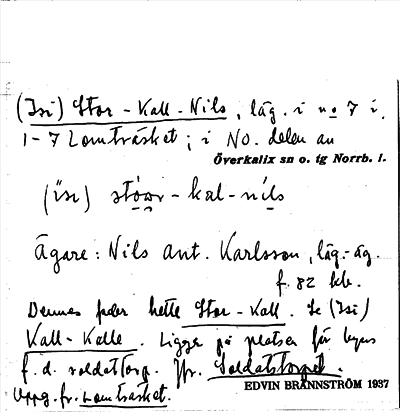 (Isi) Stor-Kall-Nils, läg. i no 7 i.
1-7 Lomträsket; i NO. delen av
Överkalix sn o. tg Norrb. l.
(isi) stóor-kal-níls
Ägare: Nils Ant. Karlsson, läg.-äg.
f. 82 kb.
Dennes fader hette Stor-Kall. Se (Isi)
Kall-Kalle. Ligger på platsen för
f.d. soldattorp. Jfr. Soldattorpet.
Uppg. fr. Lomträsket.
EDVIN BRÄNNSTRÖM 1937